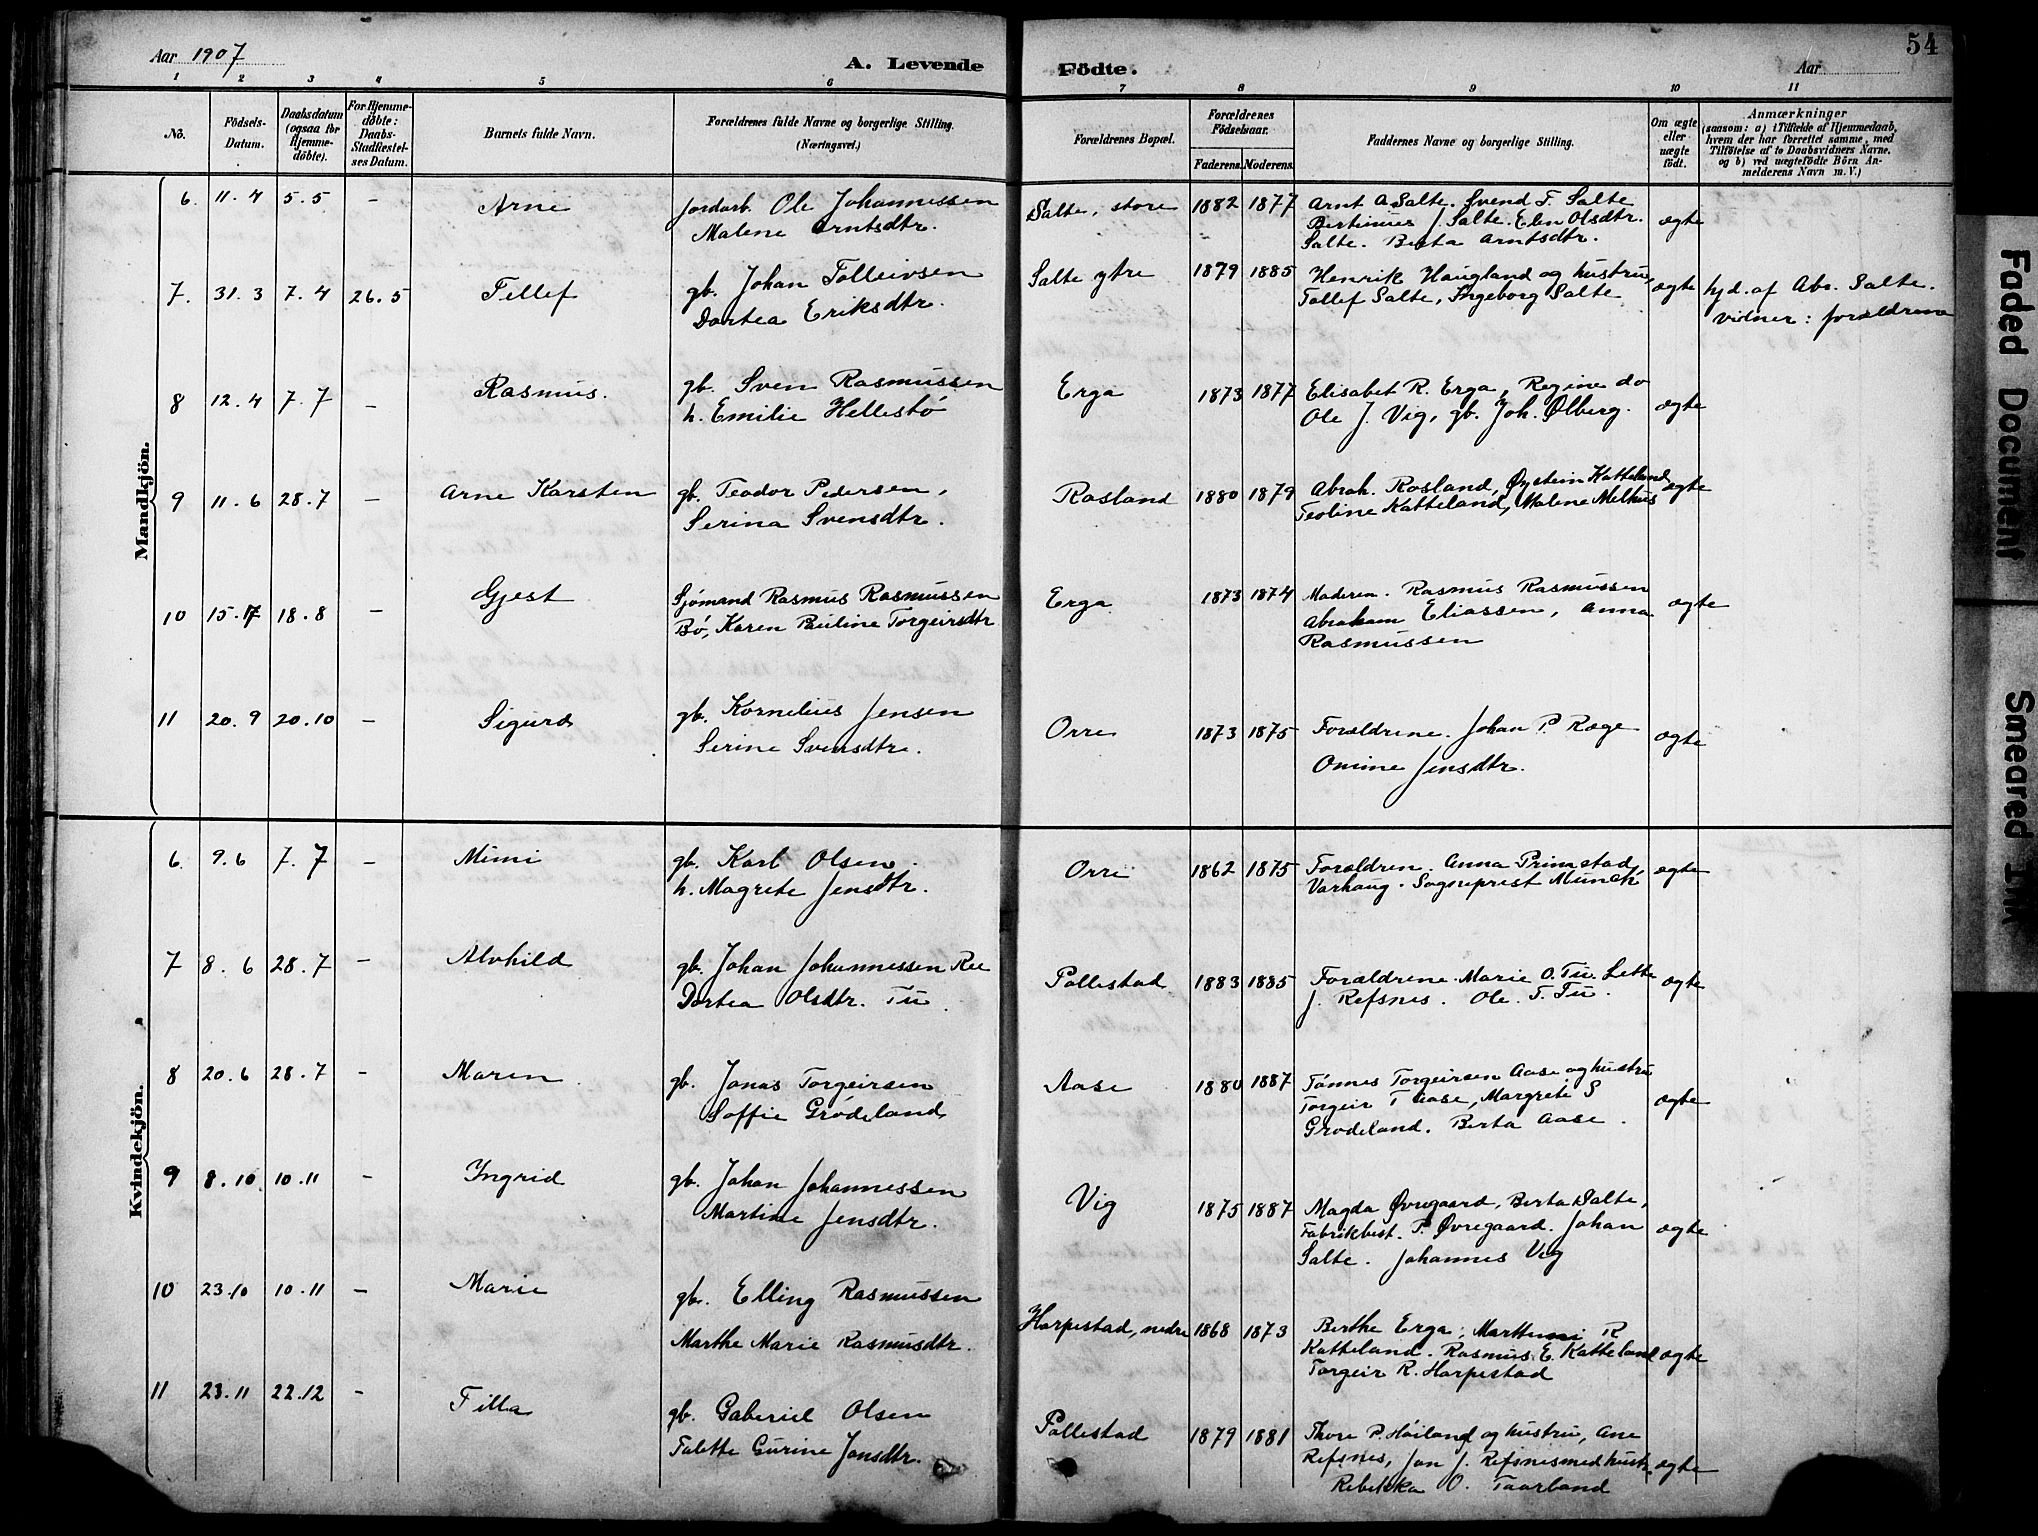 Aar 1907
A. Levende
Födte.
Aar
54
1 2 3 4 5 6 7 8 9 10 11
No.
Födsels-Datum.
Daabsdatum (ogsaa for Hjemme-döbte).
For Hjemme-döbte: Daabs-Stadfæstel-ses Datum.
Barnets fulde Navn.
Forældrenes fulde Navne og borgerlige Stilling. (Næringsvei.)
Forældrenes Bopæl.
Forældrenes Födselsaar.
Faderens. Moderens.
Faddernes Navne og borgerlige Stilling.
Om ægte eller uægte født.
Anmærkninger
(saasom: a) i Tilfælde af Hjemmedaab,
hvem der har forrettet samme, med
Tilføielse af to Daabsvidners Navne.
og b) ved uægtefödte Börn An-
melderens Navn m. V.)
Mandkjön.
6. 11. 4 5. 5 - Arne jordarb. Ole Johannessen Salte, store 1882 1877 Arnt A Salte. Svend T. Salte
Malene Arntsdtr. Bertinius J. Salte. Elen Olsdtr. ægte
Salte. Berta Arntsdtr.
7. 31. 3 7. 4 26. 5 Tellef gb. Johan Tolleivsen Salte ytre 1879 1885 Henrik Haugland og hustru, ægte hjd. af Abr. Salte.
Dortea Eriksdtr. Tollef Salte, Ingeborg Salte vidner: forældrene
8 12. 4 7. 7 - Rasmus. gb. Sven Rasmussen Erga 1873 1877 Elisabet R. Erga, Regine do
h. Emilie Hellestø Ole J. Vig, gb. Joh. Ølberg. ægte
9 11. 6 28. 7 - Arne Karsten gb. Teodor Pedersen, Rosland 1880 1879 Abrah. Rosland, Øystein Katteland ægte
Serina Svensdtr. Teoline Katteland, Malene Melhus
10 15. 7 18. 8 - Gjest Sjømand Rasmus Rasmussen Erga 1873 1874 Moderen. Rasmus Rasmussen ægte
Bø, Karen Pauline Torgeirsdtr Abraham Eliassen, Anna
Rasmussen
11 20. 9 20. 10 - Sigurd gb. Kornelius Jensen Orre 1873 1875 Forældrene. Johan P. Ræge ægte
Serine Svensdtr. Onine Jensdtr.
Kvindekjön.
6. 9. 6 7. 7 - Mimi gb. Karl Olsen. Orre 1862 1875 Forældren. Anna Primstad, ægte
h. Magrete Jensdtr. Varhaug. Sogneprest Munch
7 8. 6 28. 7 - Alvhild gb. Johan Johannessen Ree Pollestad 1883 1885 Forældrene. Marie O. Tu. Lette ægte
Dortea Olsdtr. Tu. J. Refsnes. Ole. T. Tu.
8 20. 6 28. 7 - Maren gb. Jonas Torgeirsen Aase 1880 1887 Tønnes Torgeirsen Aase og hustru
Soffie Grødeland Torgeir T Aase, Margrete S ægte
Grødeland. Berta Aase.
9 8. 10 10. 11 - Ingrid gb. Johan Johannessen Vig 1875 1887 Magda Øvregaard, Berta Salte,
Martine Jensdtr. Fabrikbest. P. Øvregaard. Johan ægte
Salte. Johannes Vig
10 23. 10 10. 11 - Marie gb. Elling Rasmussen Harpestad, nedre 1868 1873 Berthe Erga, R
Marthe Marie Rasmusdtr. Katteland. Rasmus E. Katteland ægte
Torgeir R. Harpestad
11 23. 11 22. 12 - Tilla gb. Gaberiel Olsen Pollestad 1879 1881 Thore P. Høiland og hustru, Ane
Talette Gurine Jonsdtr. Refsnes, Jon J. Refsnes med hustr. ægte
Rebekka O. Taarland
Faded Document
Smeared Ink